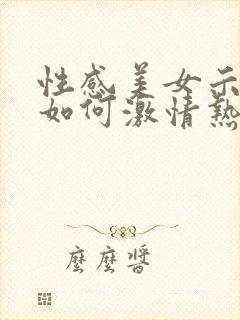 性感美女示
如何激情熱
麼麼醬